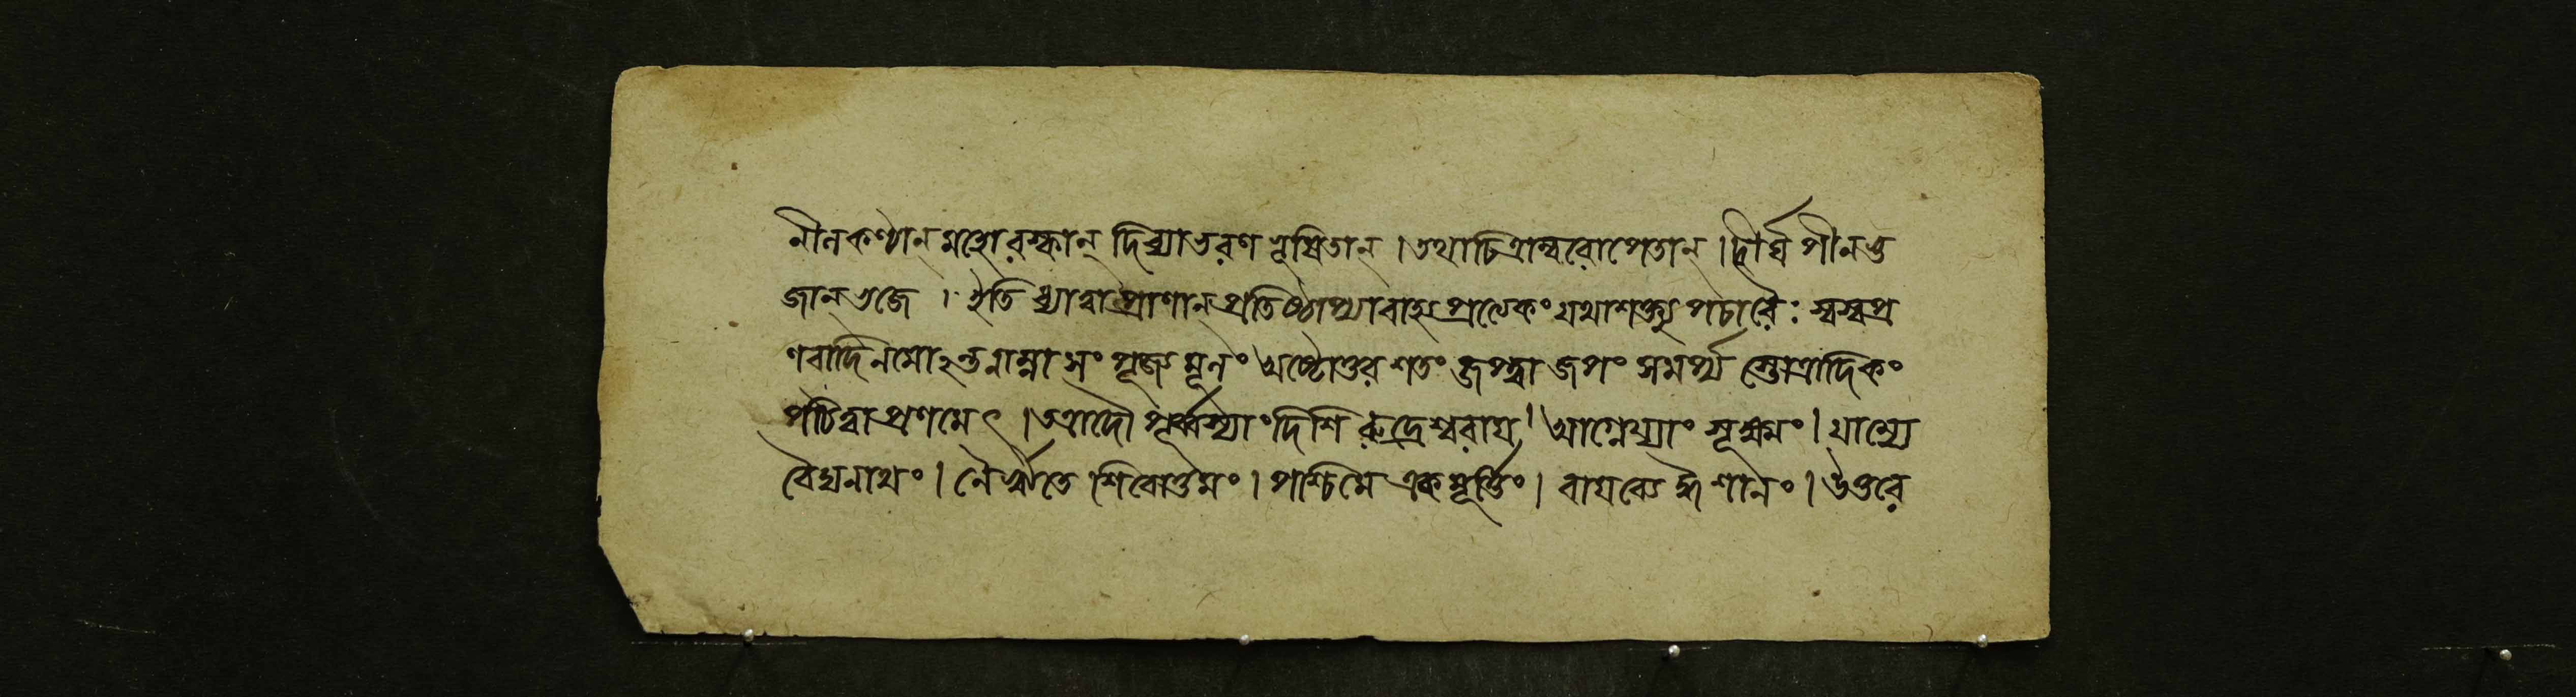 নীলকণ্ঠান্ মহোরস্কান্ দিব্যাভরণভূষিতান্ । তথা চিত্রাম্বরোপেতান্ । দীর্ঘপীনভু
জান্ ভজে । ইতি ধ্যাত্বা প্রাণান্ প্রতিষ্ঠাপ্যাবাহ্য প্রত্যেকং যথাশক্ত্যুপচারৈঃ স্বস্বপ্র
ণবাদিনমোঽন্তনাম্না সংপূজ্য মূলং অষ্টোত্তরশতং জপ্ত্বা জপং সমর্প্য স্তোত্রাদিকং
পঠিত্বা প্রণমেৎ । তত্রাদৌ পূর্ব্বস্যাং দিশি রুদ্রেশ্বরায় । আগ্নেয্যাং সূক্ষ্মং । যাম্যে
বৈদ্যনাথং । নৈর্ঋতে শিবোত্তমং । পশ্চিমে একমূর্ত্তিং । বায়ব্যে ঈশানং । উত্তরে